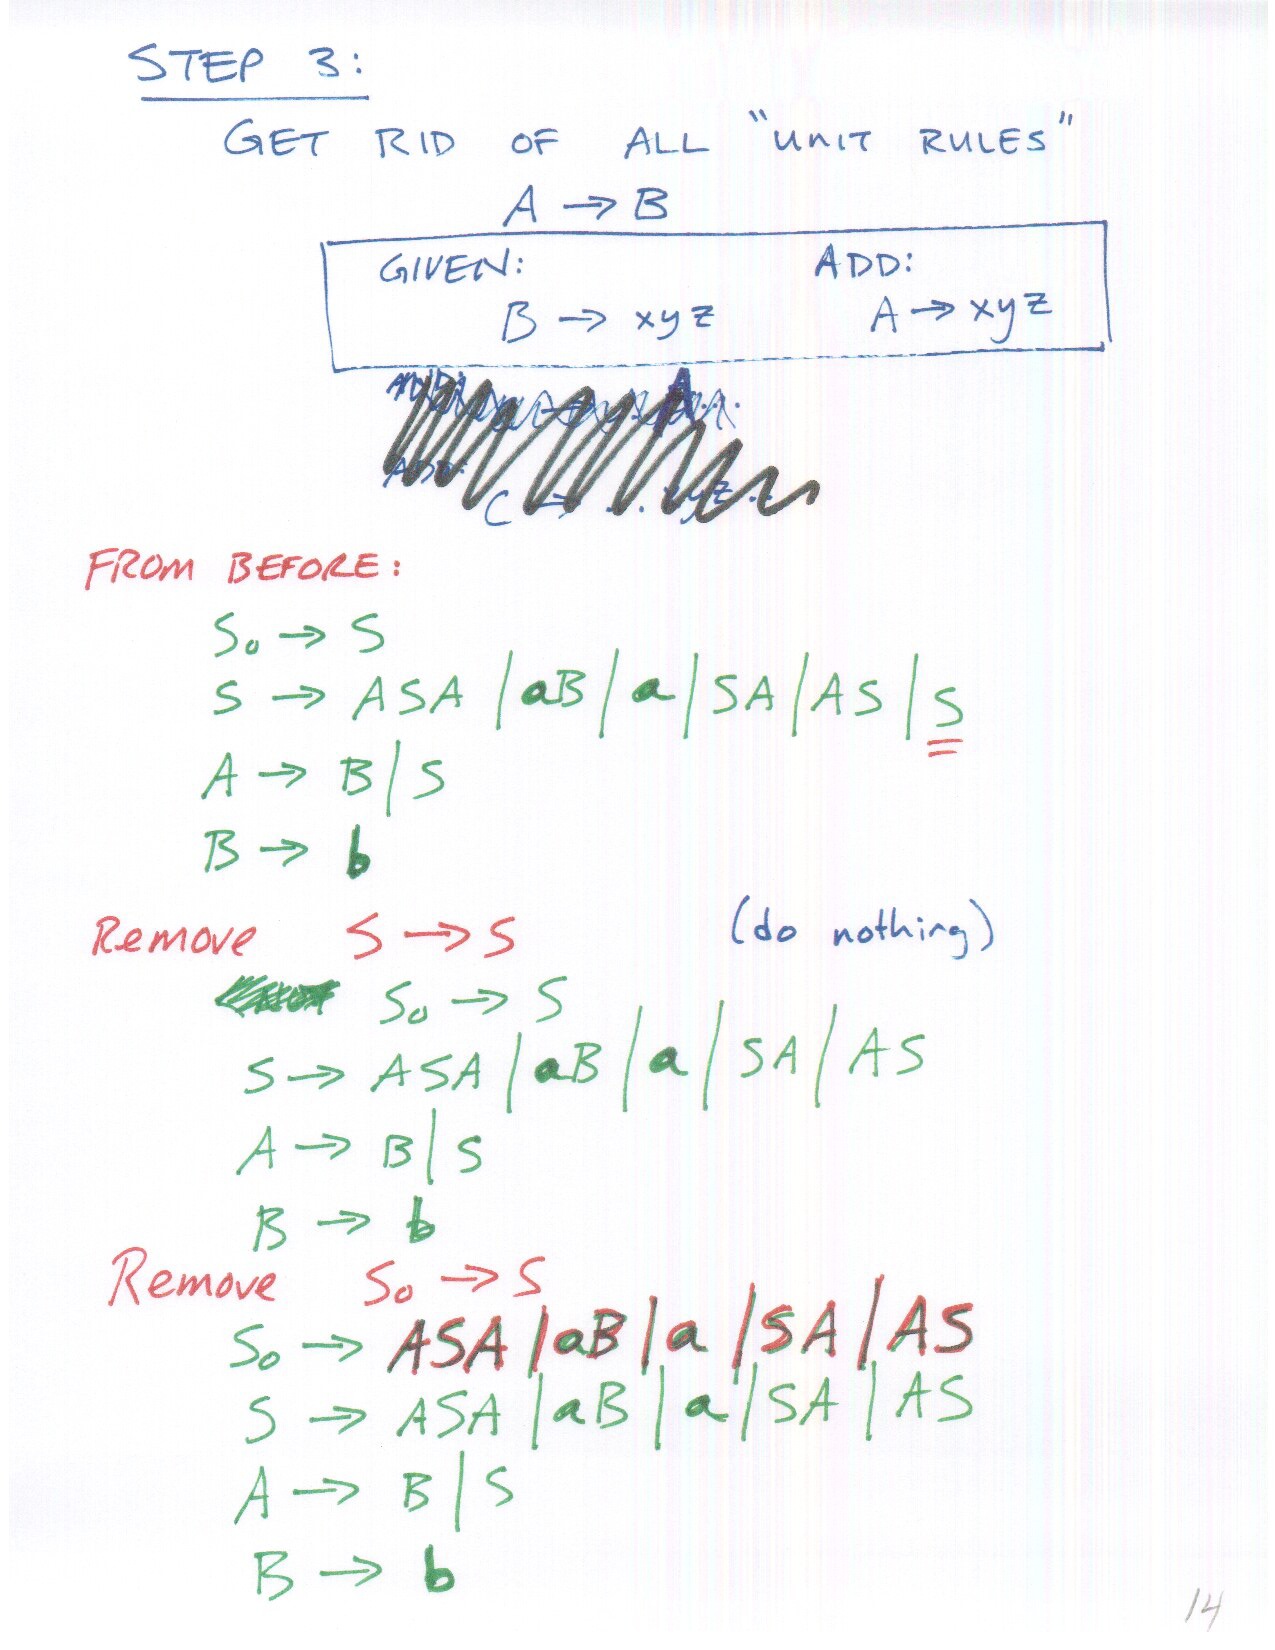 STEP 3:
GET RID OF ALL "UNIT RULES"
A → B
GIVEN: ADD:
B → xyz A → xyz
ADD:
C →
FROM BEFORE:
S₀ → S
S → ASA | aB | a | SA | AS | S
A → B | S
B → b
Remove S → S (do nothing)
S₀ → S
S → ASA | aB | a | SA | AS
A → B | S
B → b
Remove S₀ → S
S₀ → ASA | aB | a | SA | AS
S → ASA | aB | a | SA | AS
A → B | S
B → b
14